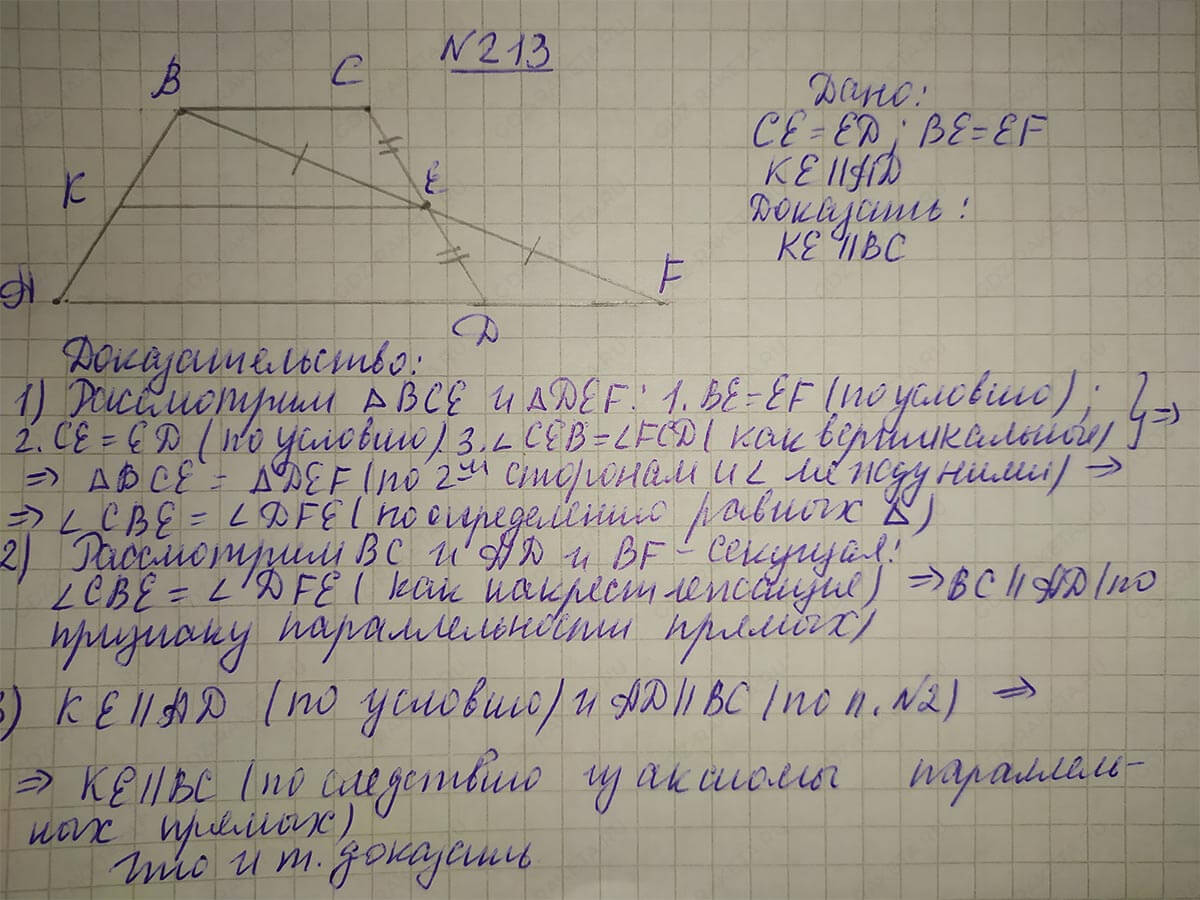 N213
B
C
K
E
A
D
F
Дано:
CE = ED; BE = EF
KE || AD
Доказать:
KE || BC
Доказательство:
1) Рассмотрим △BCE и △DEF: 1. BE = EF (по условию);
2. CE = ED (по условию). 3. ∠CEB = ∠FCD (как вертикальные) } ⇒
⇒ △BCE = △DEF (по 2ум сторонам и ∠ между ними) ⇒
⇒ ∠CBE = ∠DFE (по определению равных △)
2) Рассмотрим BC и AD и BF - секущая:
∠CBE = ∠DFE (как накрест лежащие) ⇒ BC || AD (по
признаку параллельности прямых)
3) KE || AD (по условию) и AD || BC (по п. N2) ⇒
⇒ KE || BC (по следствию из аксиомы параллель-
ных прямых)
что и т. доказать